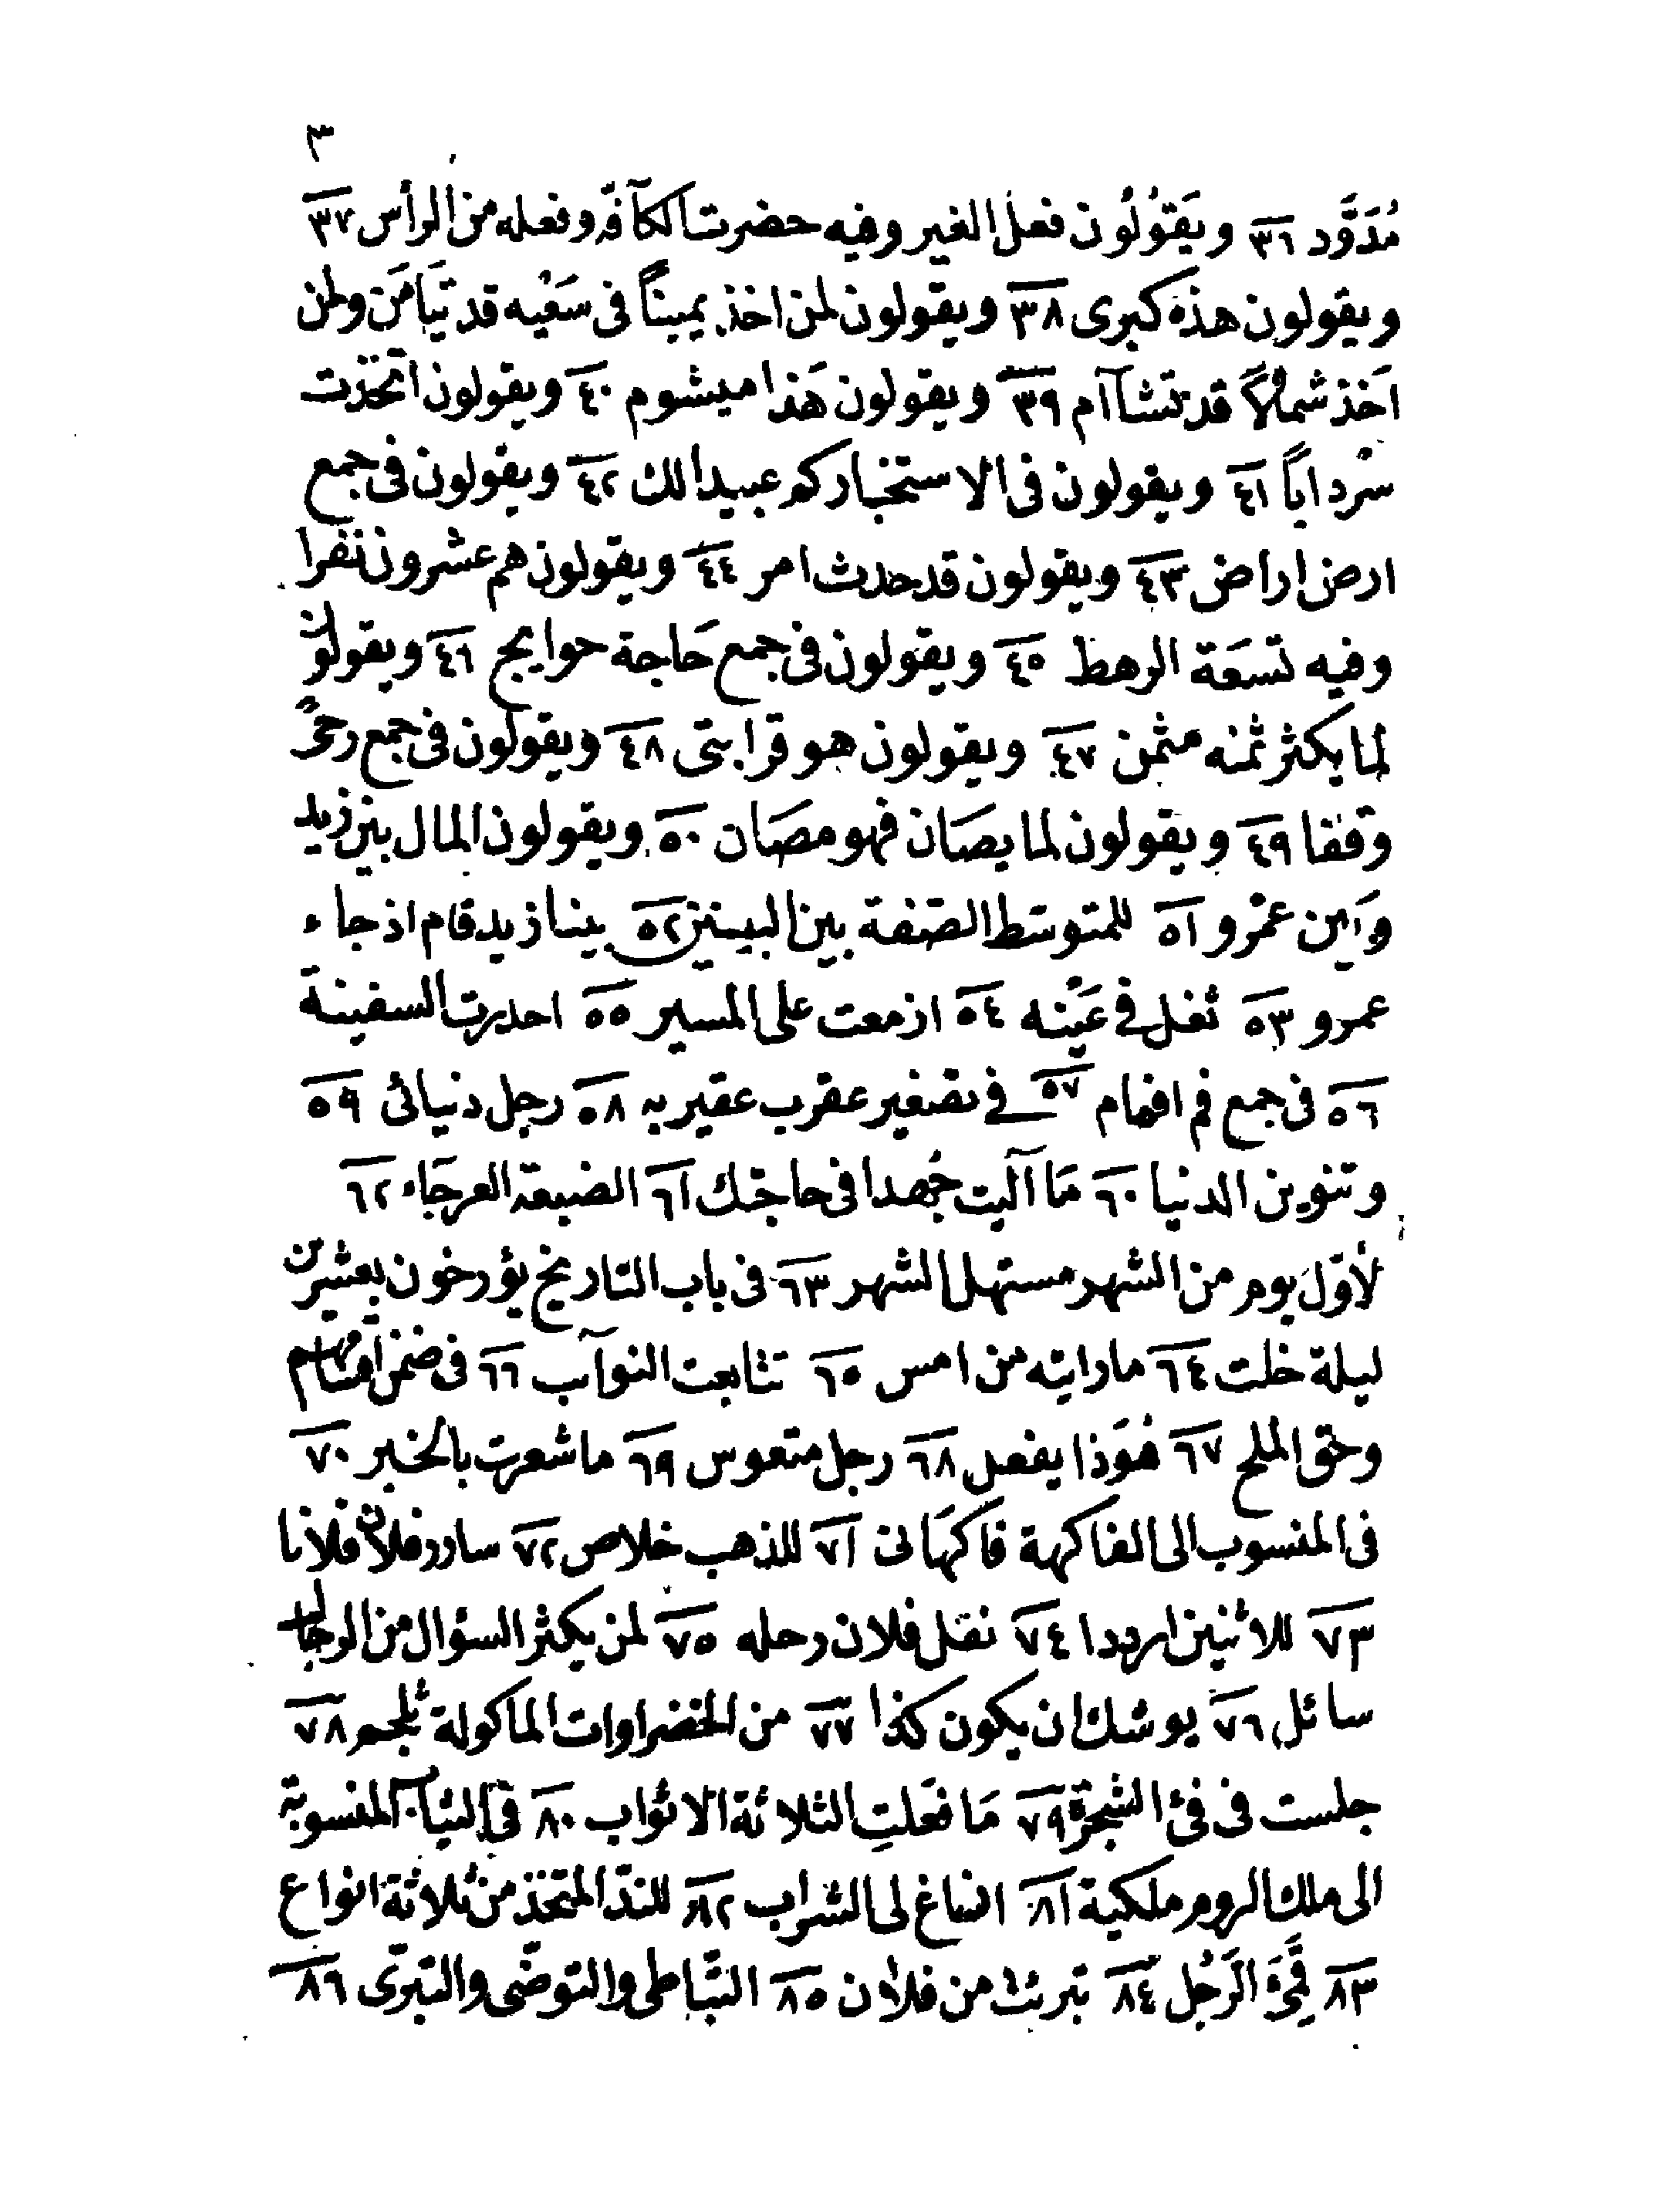 ٣
مُدَوَّد ٣٦ ويَقوُلوُن فعل الغير وفيه حضرت الكآفه وفعله من الرأس ٣٧
ويقولون هذه كبرى ٣٨ ويقولون لمن اخذ يميناً فى سَعْيه قد تيَامَن ولمن
اَخذ شمالاً قد تشاآم ٣٩ ويقولون هَذا ميشوم ٤٠ ويقولون اتخذت
سَرداباً ٤١ ويقولون فى الاستخبار كم عبيدا لك ٤٢ ويقولون فى جمع
ارض اراض ٤٣ ويقولون قد حدث امر ٤٤ ويقولون هم عشرون نفرا
وفيه تسعَة الرهط ٤٥ ويقولون فى جمع حَاجة حوايج ٤٦ ويقولون
لما يكثر ثمنه مثمن ٤٧ ويقولون هو قرابتى ٤٨ ويقولون فى جمع رحىً
وقفا ٤٩ ويقولون لما يصَان فهو مصَان ٥٠ ويقولون المال بين زيد
وبَين عمْرو ٥١ للمتوسّط الصّفة بين البينين ٥٢ بينا زيد قام اذ جاء
عمرو ٥٣ ثفل فى عَيْنه ٥٤ ازمعت على المسير ٥٥ احدرت السفينة
٥٦ فى جمع فم افمام ٥٧ فى تصغير عقرب عقيربه ٥٨ رجل دنيائى ٥٩
وتنوين الدنيا ٦٠ مَا آليت جُهدا فى حاجتك ٦١ الضبعة العرجَاء ٦٢
لأوّل يوم من الشهر مستهل الشهر ٦٣ فى باب التاريخ يؤرخون بعشرين
ليلة خلت ٦٤ ما رايته من امس ٦٥ تتابعت النوآب ٦٦ فى ضمن اقسام
وحق الملح ٦٧ هُوَذا يفعل ٦٨ رجل متعوس ٦٩ ما شعرت بالخبر ٧٠
فى المنسوب الى الفاكهة فاكهَانى ٧١ للذهب خلاص ٧٢ سارر فلان فلانا
٧٣ للاثنين ارددا ٧٤ نقل فلان رحله ٧٥ لمن يكثر السؤال من الرجال
سائل ٧٦ يوشك ان يكون كذا ٧٧ من الخضراوات الماكولة ثلجم ٧٨
جلست فى فئ الشجرة ٧٩ مَا فعَلتِ الثلاثة الاثواب ٨٠ فى الثياب المنسوبة
الى ملك الروم ملكية ٨١ انساغ لى الشراب ٨٢ للندّ المتخذ من ثلاثة انواع
٨٣ قحَّهَ الرَجُل ٨٤ تبريت من فلان ٨٥ التّباطى والتوضّى والتبرّى ٨٦